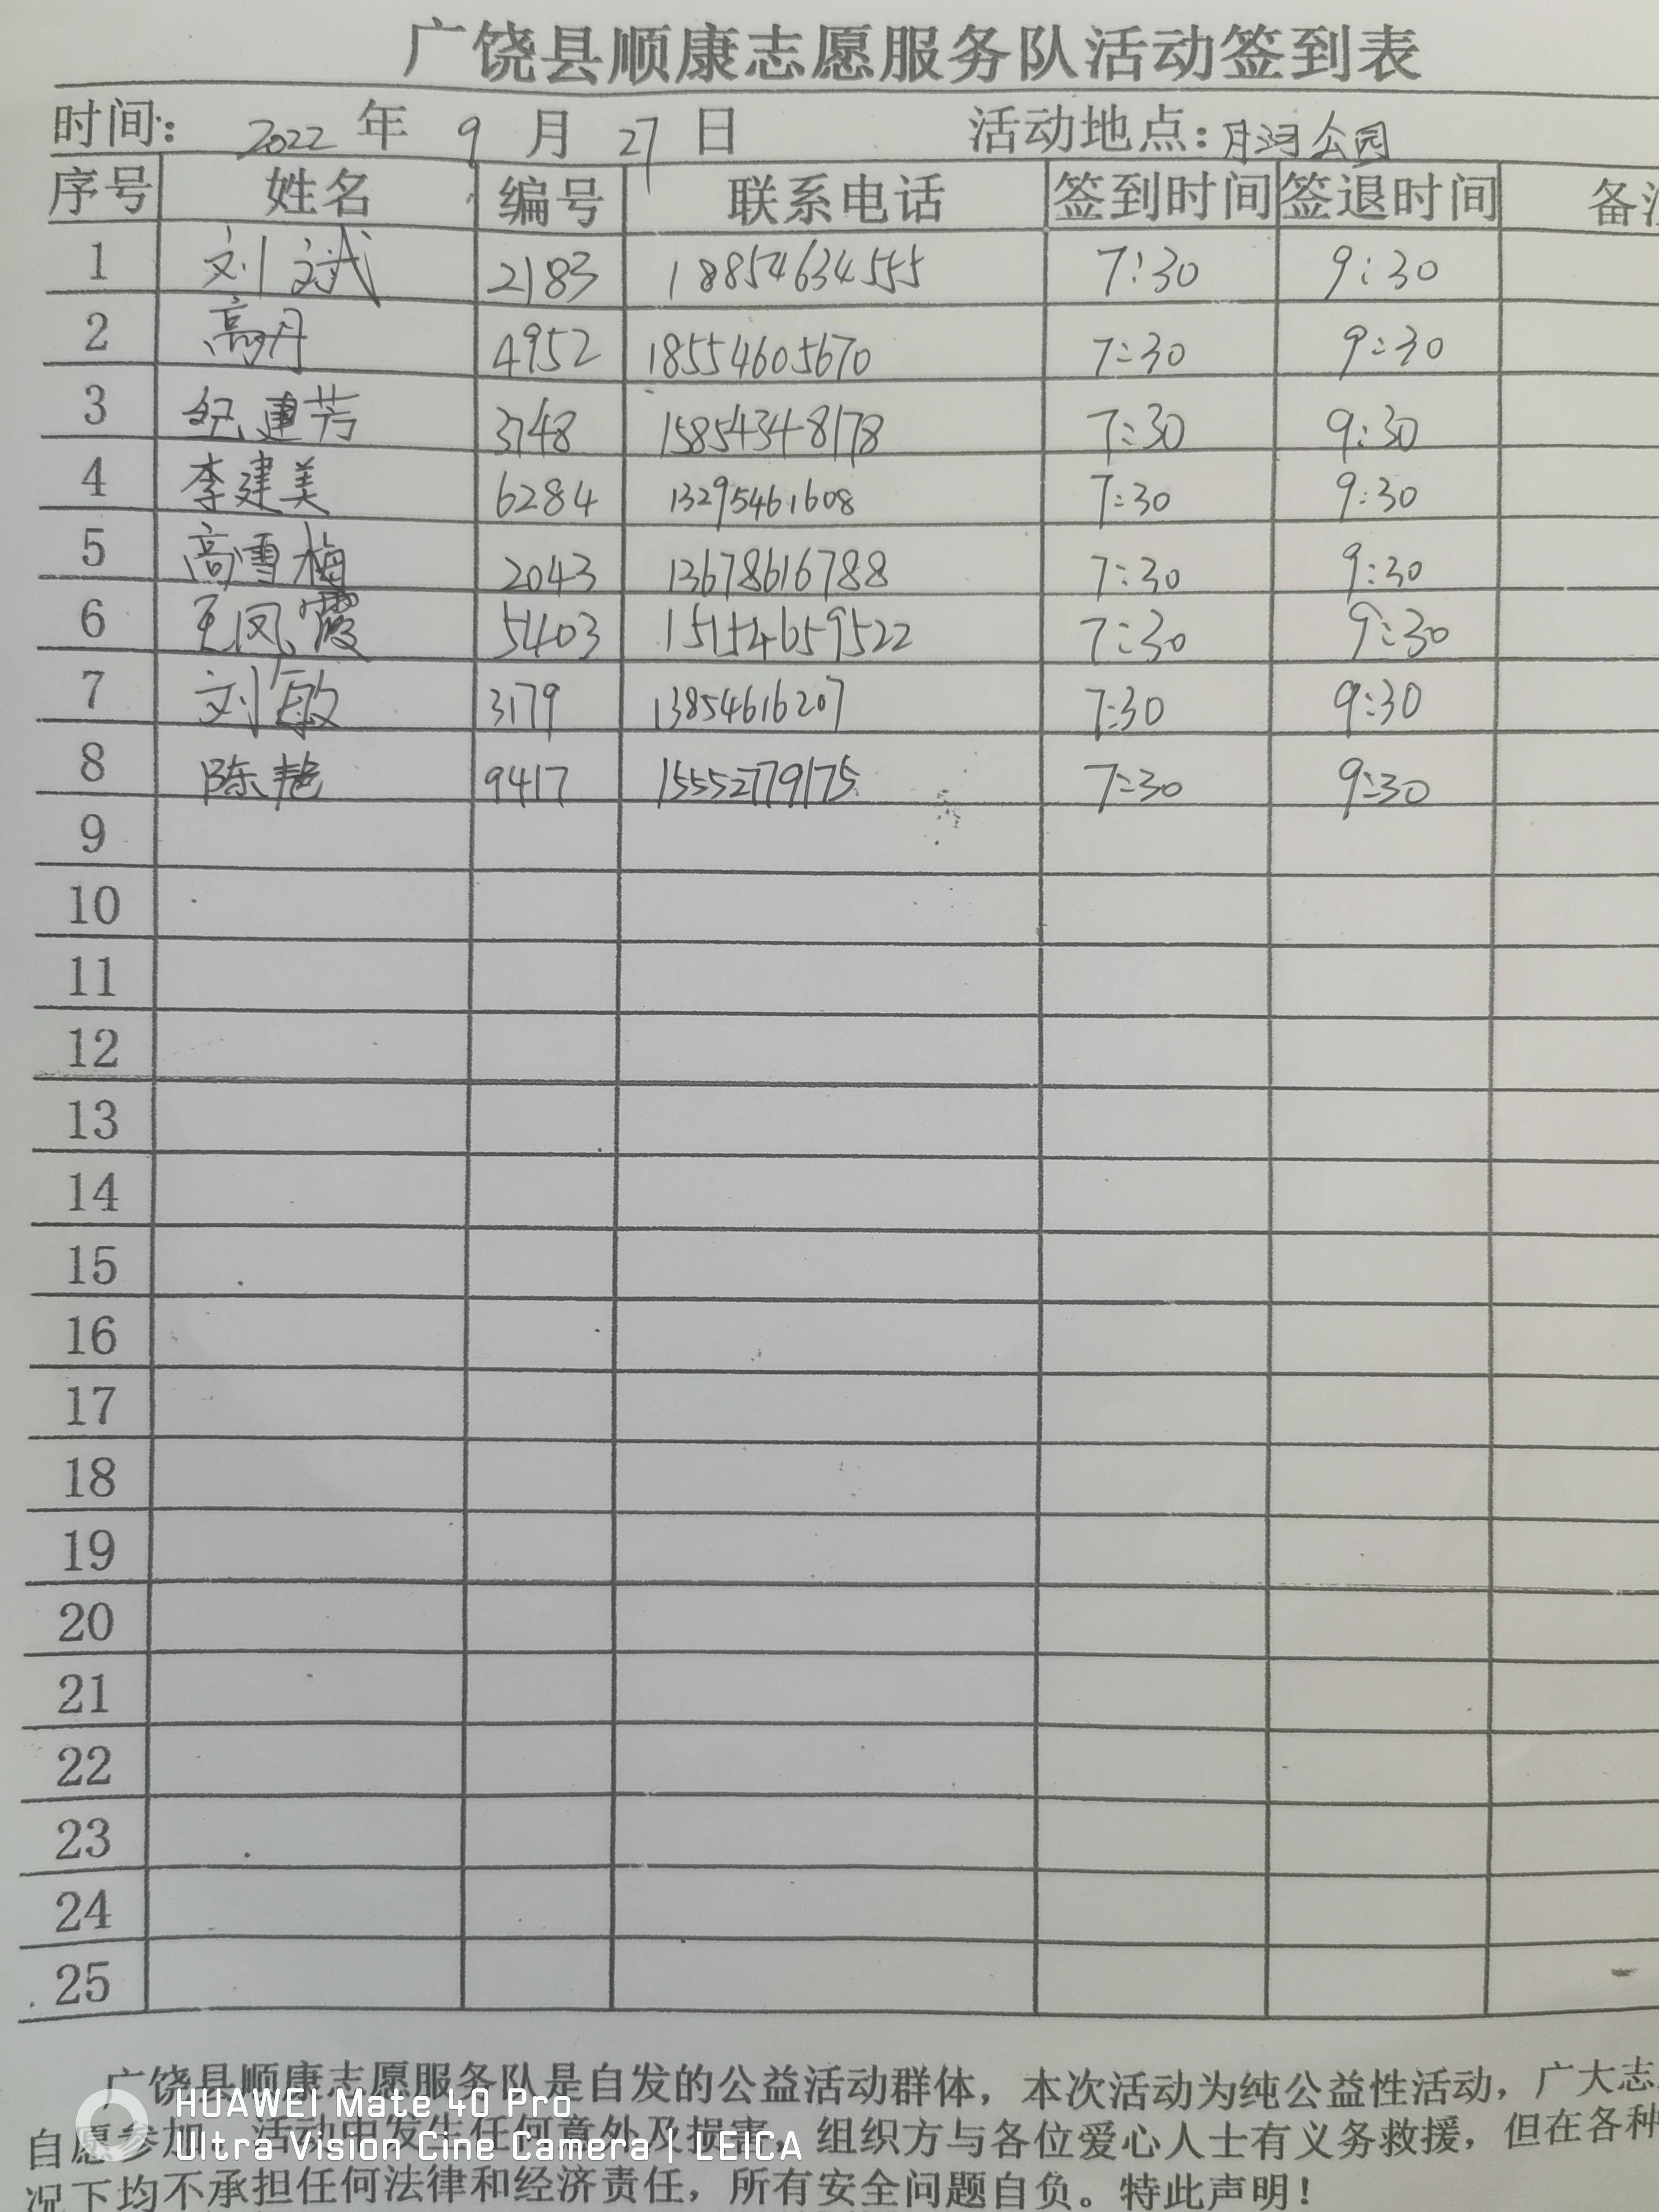 广饶县顺康志愿服务队活动签到表
时间: 2022 年 9 月 27 日 活动地点:月河公园
序号 姓名 编号 联系电话 签到时间 签退时间 备注
1 刘斌 2183 18854634555 7:30 9:30
2 高丹 4952 18554605670 7:30 9:30
3 纪建芳 3748 15854348178 7:30 9:30
4 李建美 6284 13295461608 7:30 9:30
5 高雪梅 2043 13678616788 7:30 9:30
6 王凤霞 5403 15154659522 7:30 9:30
7 刘敏 3179 13854616207 7:30 9:30
8 陈艳 9417 15552779175 7:30 9:30
9
10
11
12
13
14
15
16
17
18
19
20
21
22
23
24
25
广饶县顺康志愿服务队是自发的公益活动群体，本次活动为纯公益性活动，广大志
自愿参加，活动中发生任何意外及损害，组织方与各位爱心人士有义务救援，但在各种
况下均不承担任何法律和经济责任，所有安全问题自负。特此声明！
HUAWEI Mate 40 Pro
Ultra Vision Cine Camera | LEICA